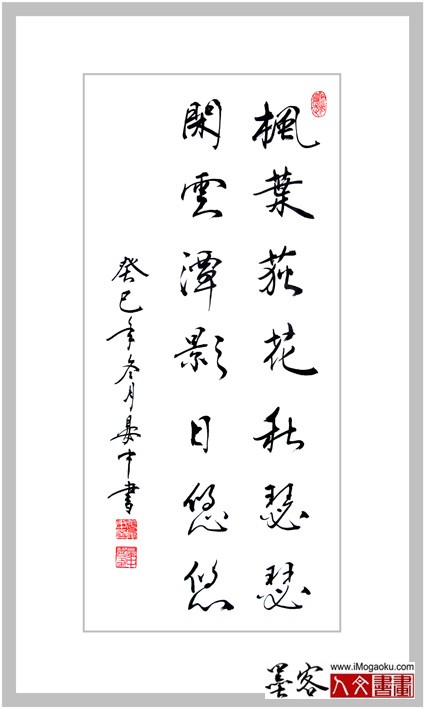 楓葉荻花秋瑟瑟
閑雲潭影日悠悠
癸巳年冬月晏中書
墨客
www.iMogaoku.com
人文書畫